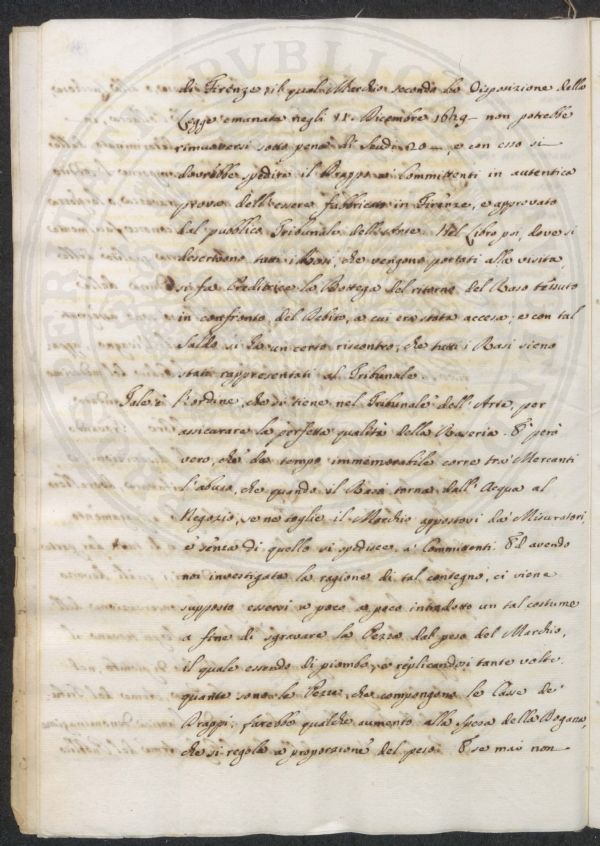 di Firenze; il qual Marchio secondo la Disposizione della
Legge emanata negli 11 Dicembre 1629 non potrebbe
rimuoversi sotto pena di Scudi 20 —, e con esso si
dovrebbe spedire il Drappo a' Committenti in autentica
prova dell'essere fabbricato in Firenze, e approvato
dal pubblico Tribunale dell'Arte. Nel Libro poi, dove si
descrivono tutti i Rasi, che vengono portati alla visita,
si fa Creditrice la Bottega del ritorno del Raso tessuto
in confronto del Debito, a cui era stata accesa; e con tal
Saldo si ha un certo riscontro, che tutti i Rasi sieno
stati rappresentati al Tribunale.
Tale è l'ordine, che si tiene nel Tribunale dell'Arte, per
assicurare la perfetta qualità della Raseria. È però
vero, che da tempo immemorabile corre tra' Mercanti
l'abuso, che quando il Raso torna dall'Acqua al
Negozio, se ne toglie il Marchio appostovi da' Misuratori,
e senza di quello si spedisce a' Committenti. Ed avendo
noi investigata la ragione di tal contegno, ci viene
supposto essersi a poco a poco introdotto un tal costume
a fine di sgravare la Pezza dal peso del Marchio,
il quale essendo di piombo, e replicandosi tante volte
quante sono le Pezze, che compongono le Casse de'
Drappi, farebbe qualche aumento alla spesa della Dogana,
che si regola a proporzione del peso. E se mai non